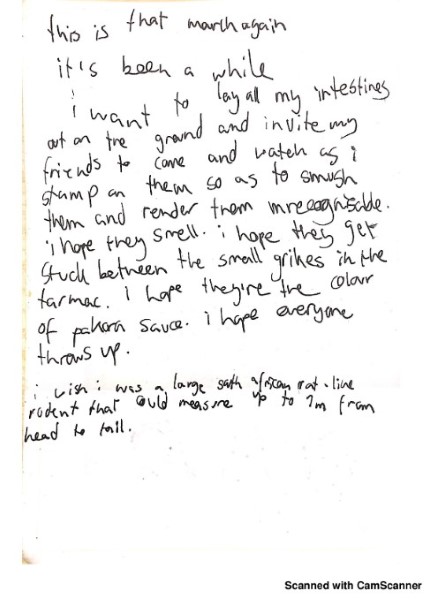 this is that march again
it's been a while
i want to lay all my intestines
out on the ground and invite my
friends to come and watch as i
stamp on them so as to smush
them and render them unrecognisable.
i hope they smell. i hope they get
stuck between the small grikes in the
tarmac. I hope they're the colour
of pakora sauce. i hope everyone
throws up.
i wish i was a large south african rat-like
rodent that could measure up to 1m from
head to tail.
Scanned with CamScanner